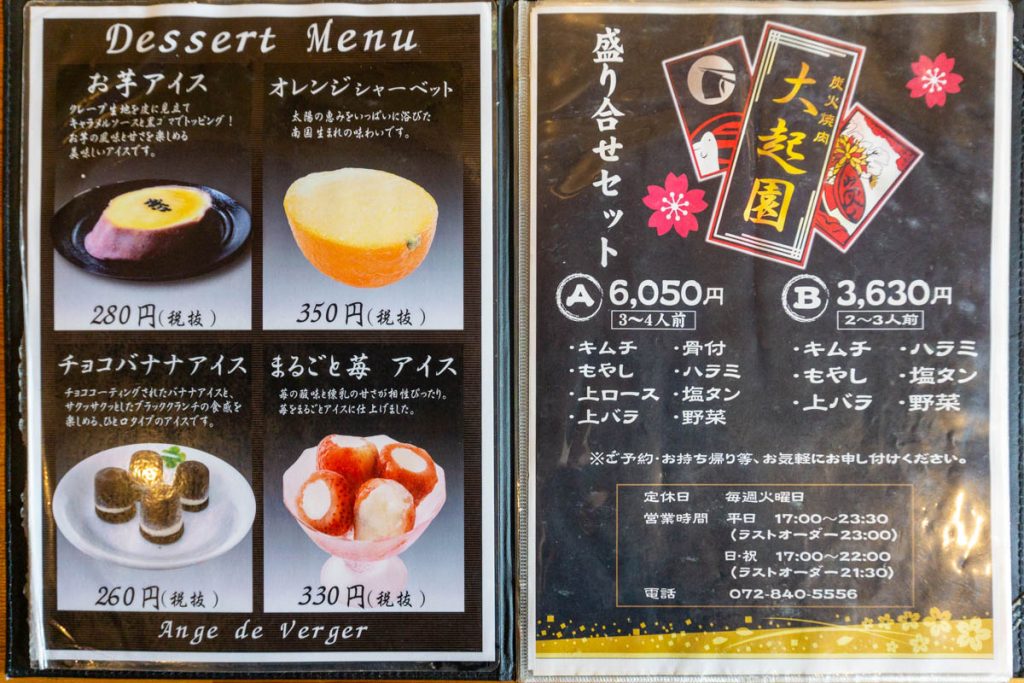 Dessert Menu
お芋アイス
クレープ生地を皮に見立て
キャラメルソースと黒ゴマでトッピング!
お芋の風味と甘さを楽しめる
美味しいアイスです。
280円(税抜)
オレンジシャーベット
太陽の恵みをいっぱいに浴びた
南国生まれの味わいです。
350円(税抜)
チョコバナナアイス
チョココーティングされたバナナアイスと、
サクッサクッとしたブラッククランチの食感を
楽しめる、ひと口タイプのアイスです。
260円(税抜)
まるごと苺 アイス
苺の酸味と練乳の甘さが相性ぴったり。
苺をまるごとアイスに仕上げました。
330円(税抜)
Ange de Verger
盛り合せセット
炭火焼肉
大起園
A 6,050円
3〜4人前
・キムチ ・骨付
・もやし ・ハラミ
・上ロース ・塩タン
・上バラ ・野菜
B 3,630円
2〜3人前
・キムチ ・ハラミ
・もやし ・塩タン
・上バラ ・野菜
※ご予約・お持ち帰り等、お気軽にお申し付けください。
定休日 毎週火曜日
営業時間 平日 17:00〜23:30
(ラストオーダー23:00)
日・祝 17:00〜22:00
(ラストオーダー21:30)
電話 072-840-5556